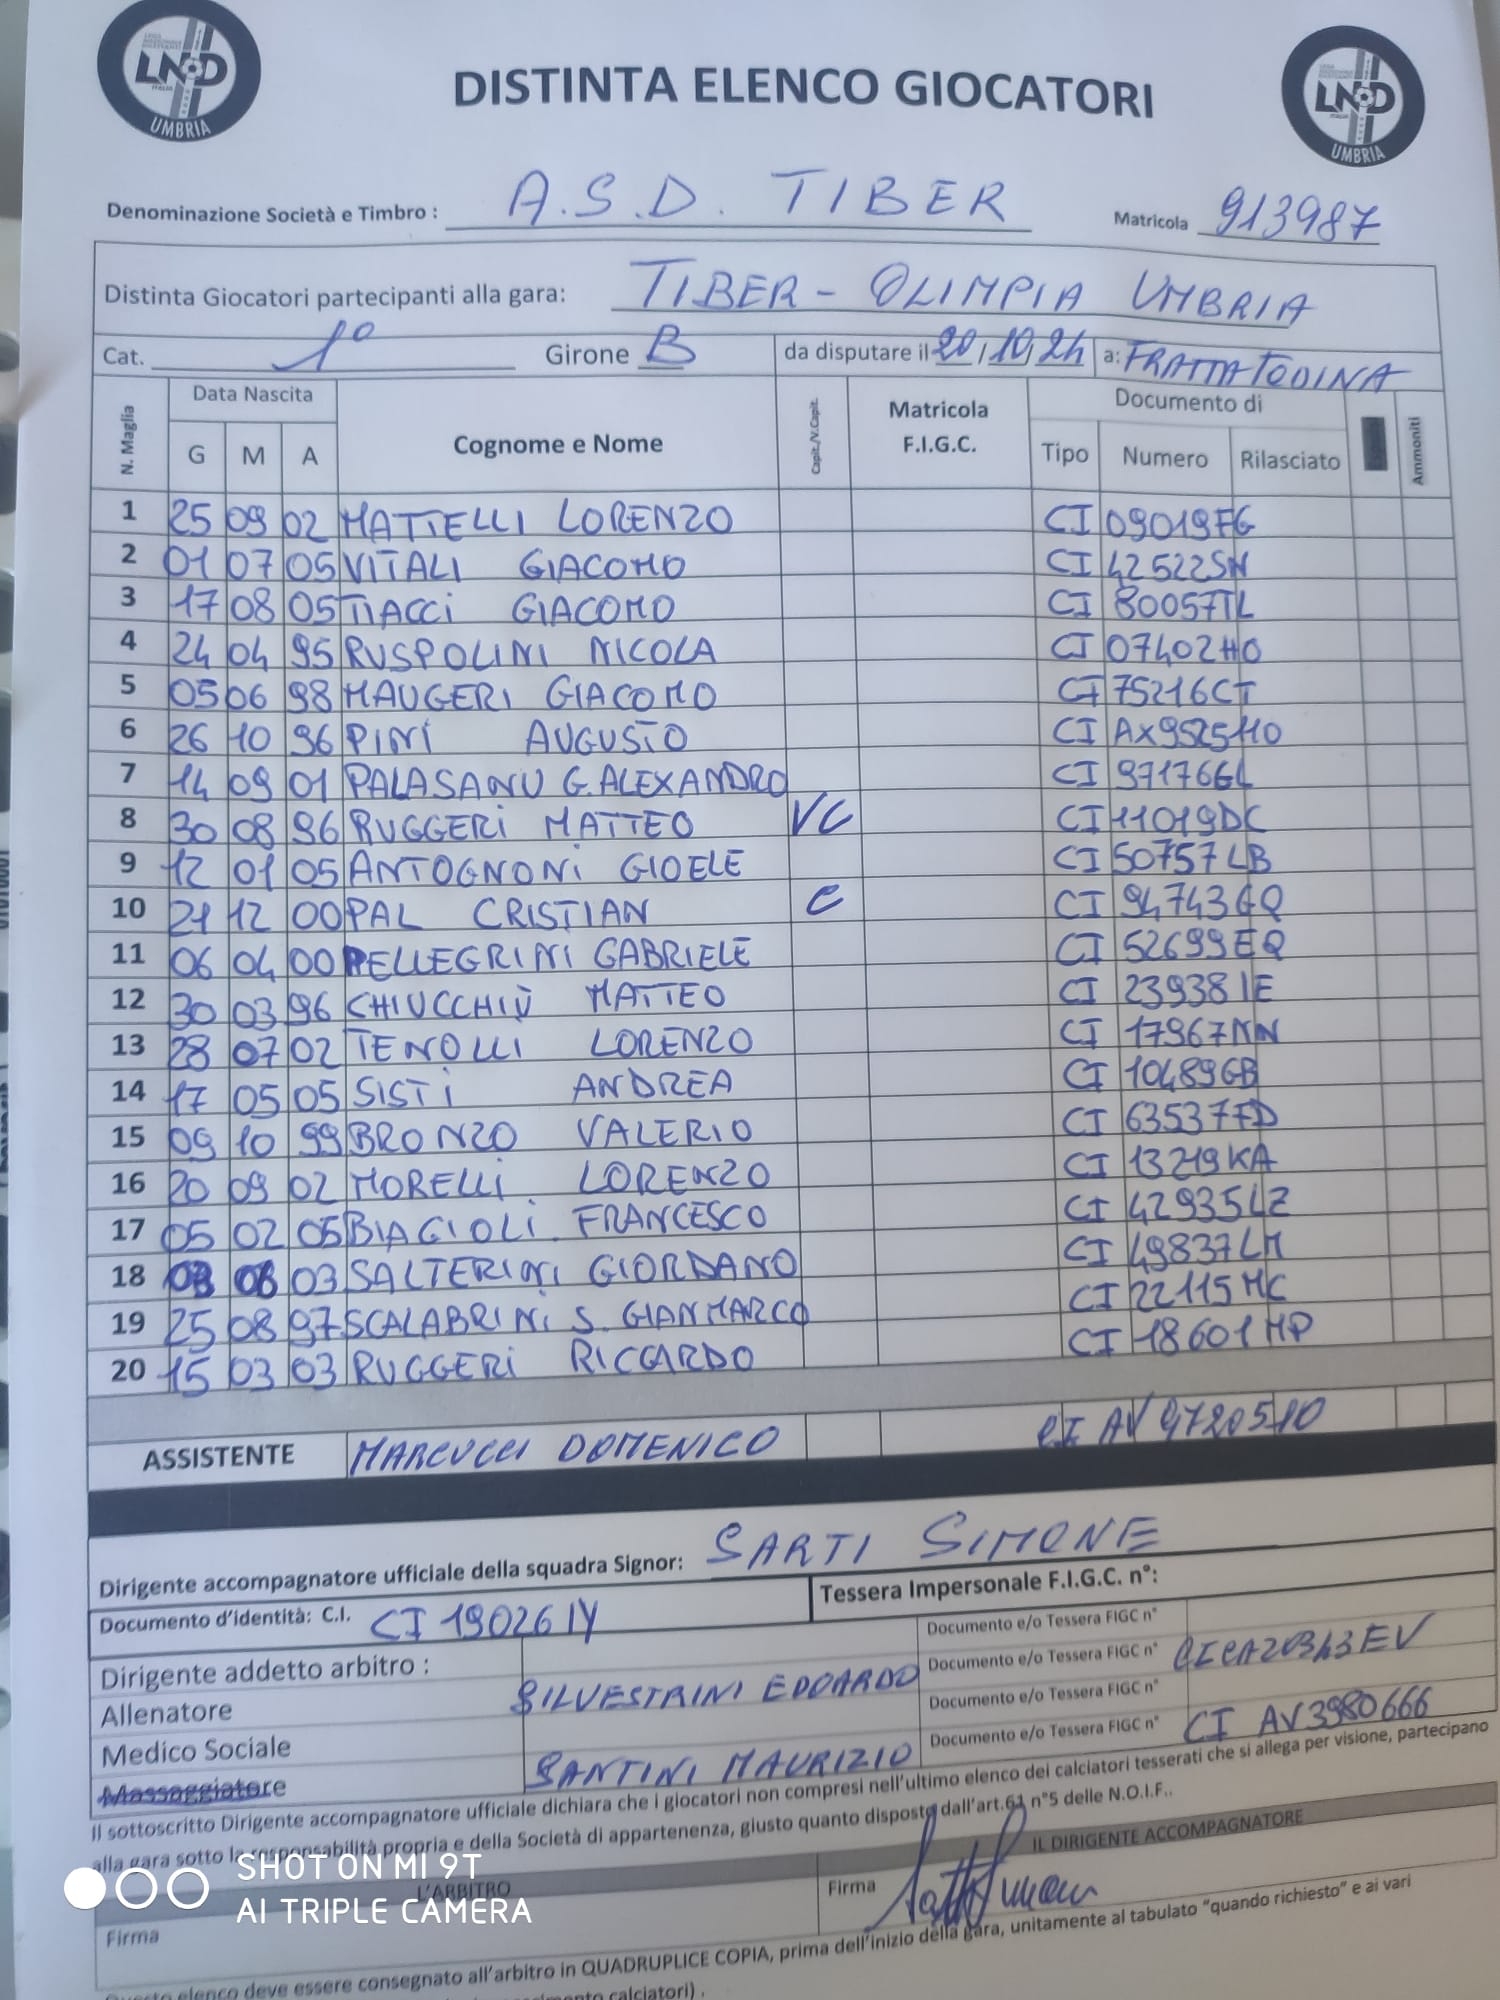 LND
UMBRIA
DISTINTA ELENCO GIOCATORI
LND
UMBRIA
Denominazione Società e Timbro : A.S.D. TIBER Matricola 913987
Distinta Giocatori partecipanti alla gara: TIBER - OLIMPIA UMBRIA
Cat. 1° Girone B da disputare il 20/10/24 a: FRATTA TODINA
N. Maglia Data Nascita Cognome e Nome Capit./V.Capit. Matricola F.I.G.C. Documento di Ammoniti
G M A Tipo Numero Rilasciato
1 25 09 02 MATTELLI LORENZO CI 09019FG
2 01 07 05 VITALI GIACOMO CI 42522SN
3 17 08 05 TIACCI GIACOMO CI 80057TL
4 24 04 95 RUSPOLINI NICOLA CI 07402HO
5 05 06 98 MAUGERI GIACOMO CI 75216CT
6 26 10 96 PINI AUGUSTO CI AX9525410
7 14 09 01 PALASANU G. ALEXANDRO CI 97176GL
8 30 08 96 RUGGERI MATTEO VC CI 11019DC
9 12 01 05 ANTOGNONI GIOELE CI 50757LB
10 21 12 00 PAL CRISTIAN C CI 94743GQ
11 06 04 00 PELLEGRINI GABRIELE CI 52699EQ
12 30 03 96 CHIUCCHIÙ MATTEO CI 23938IE
13 28 07 02 TENOLLI LORENZO CI 17967NN
14 17 05 05 SISTI ANDREA CI 10489GB
15 09 10 99 BRONZO VALERIO CI 63537FD
16 20 09 02 MORELLI LORENZO CI 13219KA
17 05 02 05 BIAGIOLI FRANCESCO CI 42935LZ
18 03 SALTERINI GIORDANO CI 49837LM
19 25 08 97 SCALABRINI S. GIANMARCO CI 22115MC
20 15 03 03 RUGGERI RICCARDO CI 18601MP
ASSISTENTE MARCUCCI DOMENICO CI AV9720510
Dirigente accompagnatore ufficiale della squadra Signor: SARTI SIMONE
Documento d'identità: C.I. CI 19026IY Tessera Impersonale F.I.G.C. n°:
Dirigente addetto arbitro : Documento e/o Tessera FIGC n°
Allenatore SILVESTRINI EDOARDO Documento e/o Tessera FIGC n° CI CA20343EV
Medico Sociale Documento e/o Tessera FIGC n°
Massaggiatore SANTINI MAURIZIO Documento e/o Tessera FIGC n° CI AV3980666
Il sottoscritto Dirigente accompagnatore ufficiale dichiara che i giocatori non compresi nell'ultimo elenco dei calciatori tesserati che si allega per visione, partecipano
alla gara sotto la responsabilità propria e della Società di appartenenza, giusto quanto disposto dall'art.61 n°5 delle N.O.I.F..
L'ARBITRO IL DIRIGENTE ACCOMPAGNATORE
Firma Firma
SHOT ON MI 9T
AI TRIPLE CAMERA
Questo elenco deve essere consegnato all'arbitro in QUADRUPLICE COPIA, prima dell'inizio della gara, unitamente al tabulato "quando richiesto" e ai vari
calciatori) .